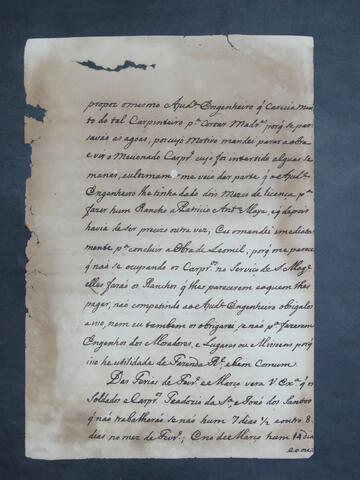 propoz o mesmo Ajud.e Engenheiro q̃ Carecia Mui
to do tal Carpinteiro p.a Cortar Madr.as porq̃ se pas
savaõ as agoas, por cujo Motivo mandei parar a obra
e vir o Mecionado Carpr.o cujo foi intertido alguas se
manas, e ultimam.e me veio dar parte q̃ o Ajud.e
Engenheiro lhe tinha dado dois Mezes de licença p.a
fazer hum Rancho a Patricio Ant.o e Moje, e q̃ depois
havia de ser precizo outra vez, Eu o mandei imediata
mente p.a concluir a Obra de Leomil; porq̃ me parece
q̃ naõ se ocupando os Carpr.os no Serviço de S. Mag.e
elles faraõ os Ranchos q̃ lhes parecerem a quem lhes
pagar, naõ competindo ao Ajud.e Engenheiro obrigalos
a isso, nem eu tambem os obrigarei se naõ p.a fazerem
Engenhos dos Moradores, e Lugares ou Missoens porq̃
isso he utilidade da Fazenda R.l e bem Comum.
Das Ferias de Fevr.o e Março vera V Ex.a q̃ os
Soldados e Carpr.os Teodozio da S.a e Joze dos Santos
q̃ naõ trabalharaõ se naõ hum 7 dias 1/2 e outro 8
dias no mez de Fevr.o; e no de Março hum 14 dia